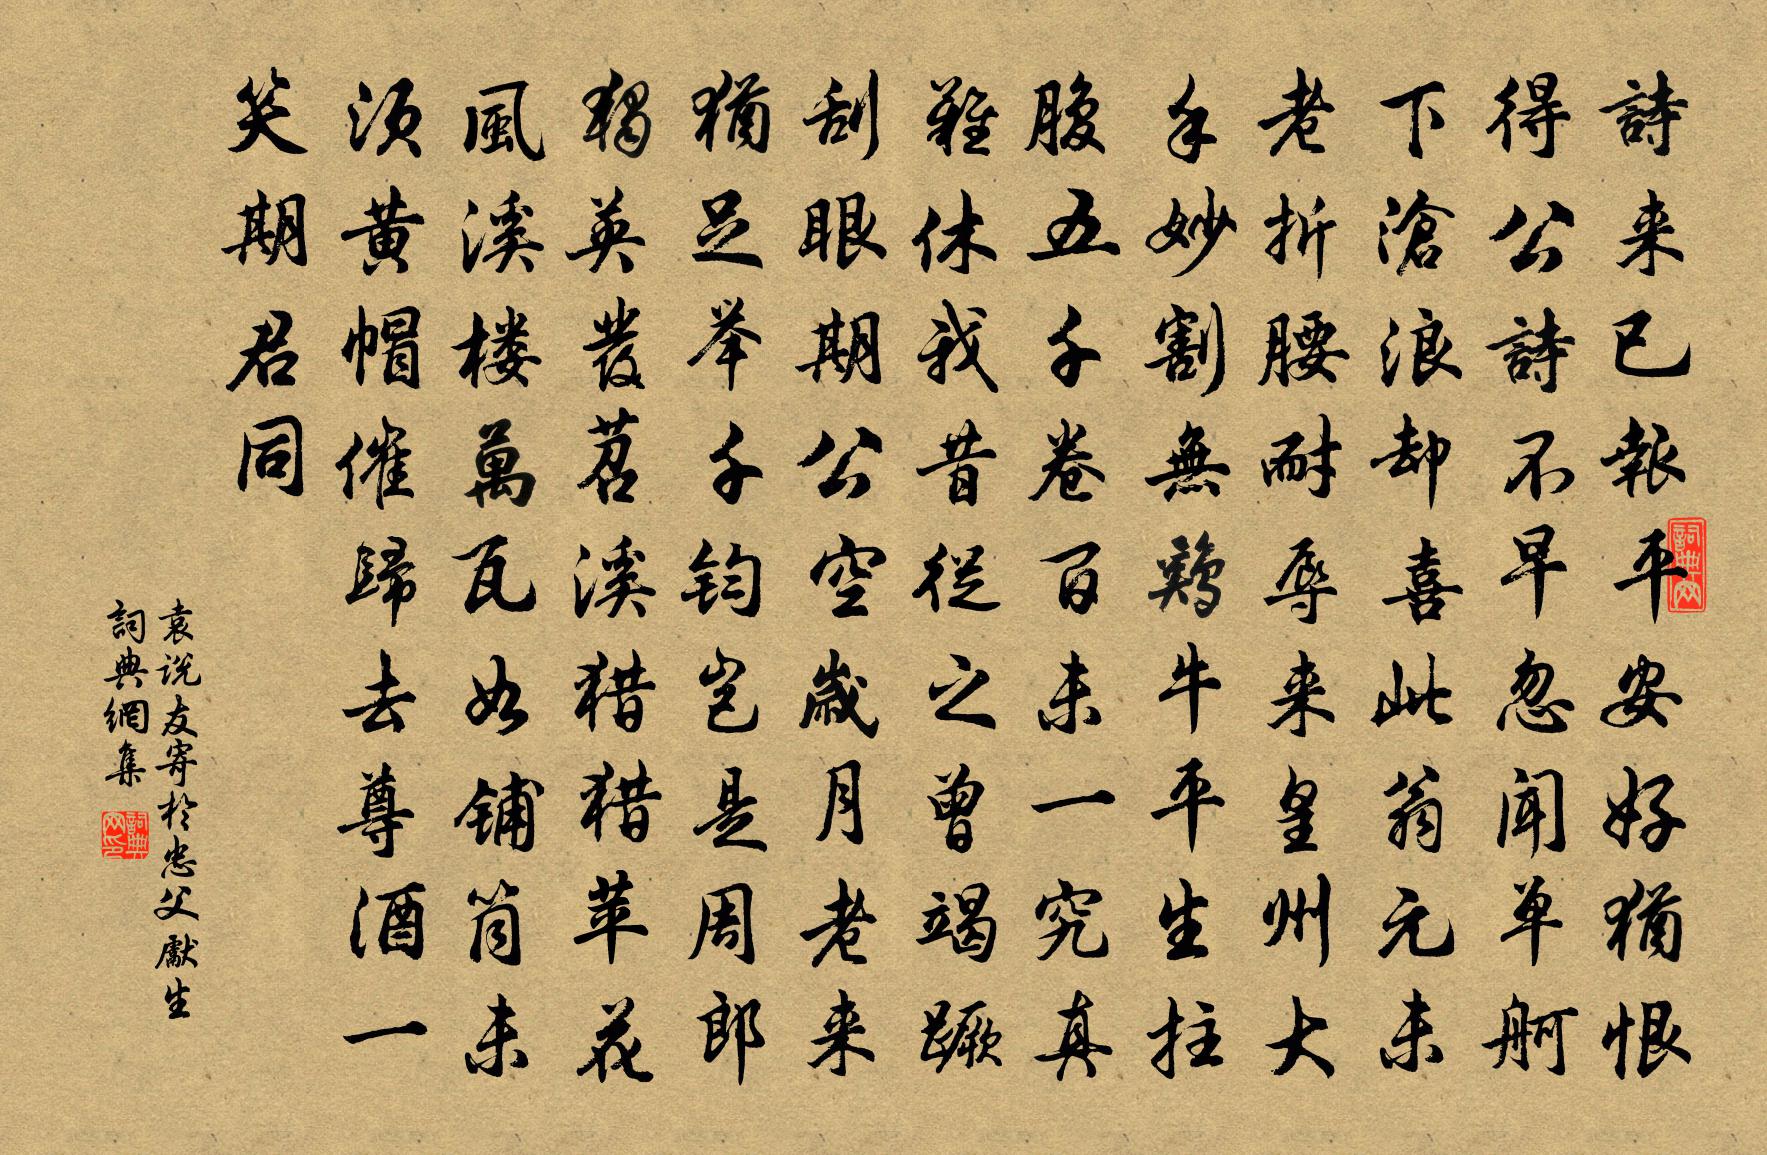 詩来已報平安好猶恨
得公詩不早忽聞单舸
下滄浪却喜此翁元未
老折腰耐辱来皇州大
手妙割無鷄牛平生拄
腹五千卷百未一究真
難休我昔從之曾竭蹶
刮眼期公空歲月老来
猶足举千鈞岂是周郎
獨英發苕溪猎猎苹花
風溪楼萬瓦如铺筒未
須黄帽催歸去尊酒一
笑期君同
袁说友寄於忠父獻生
詞典網集
詞典网
詞典网印